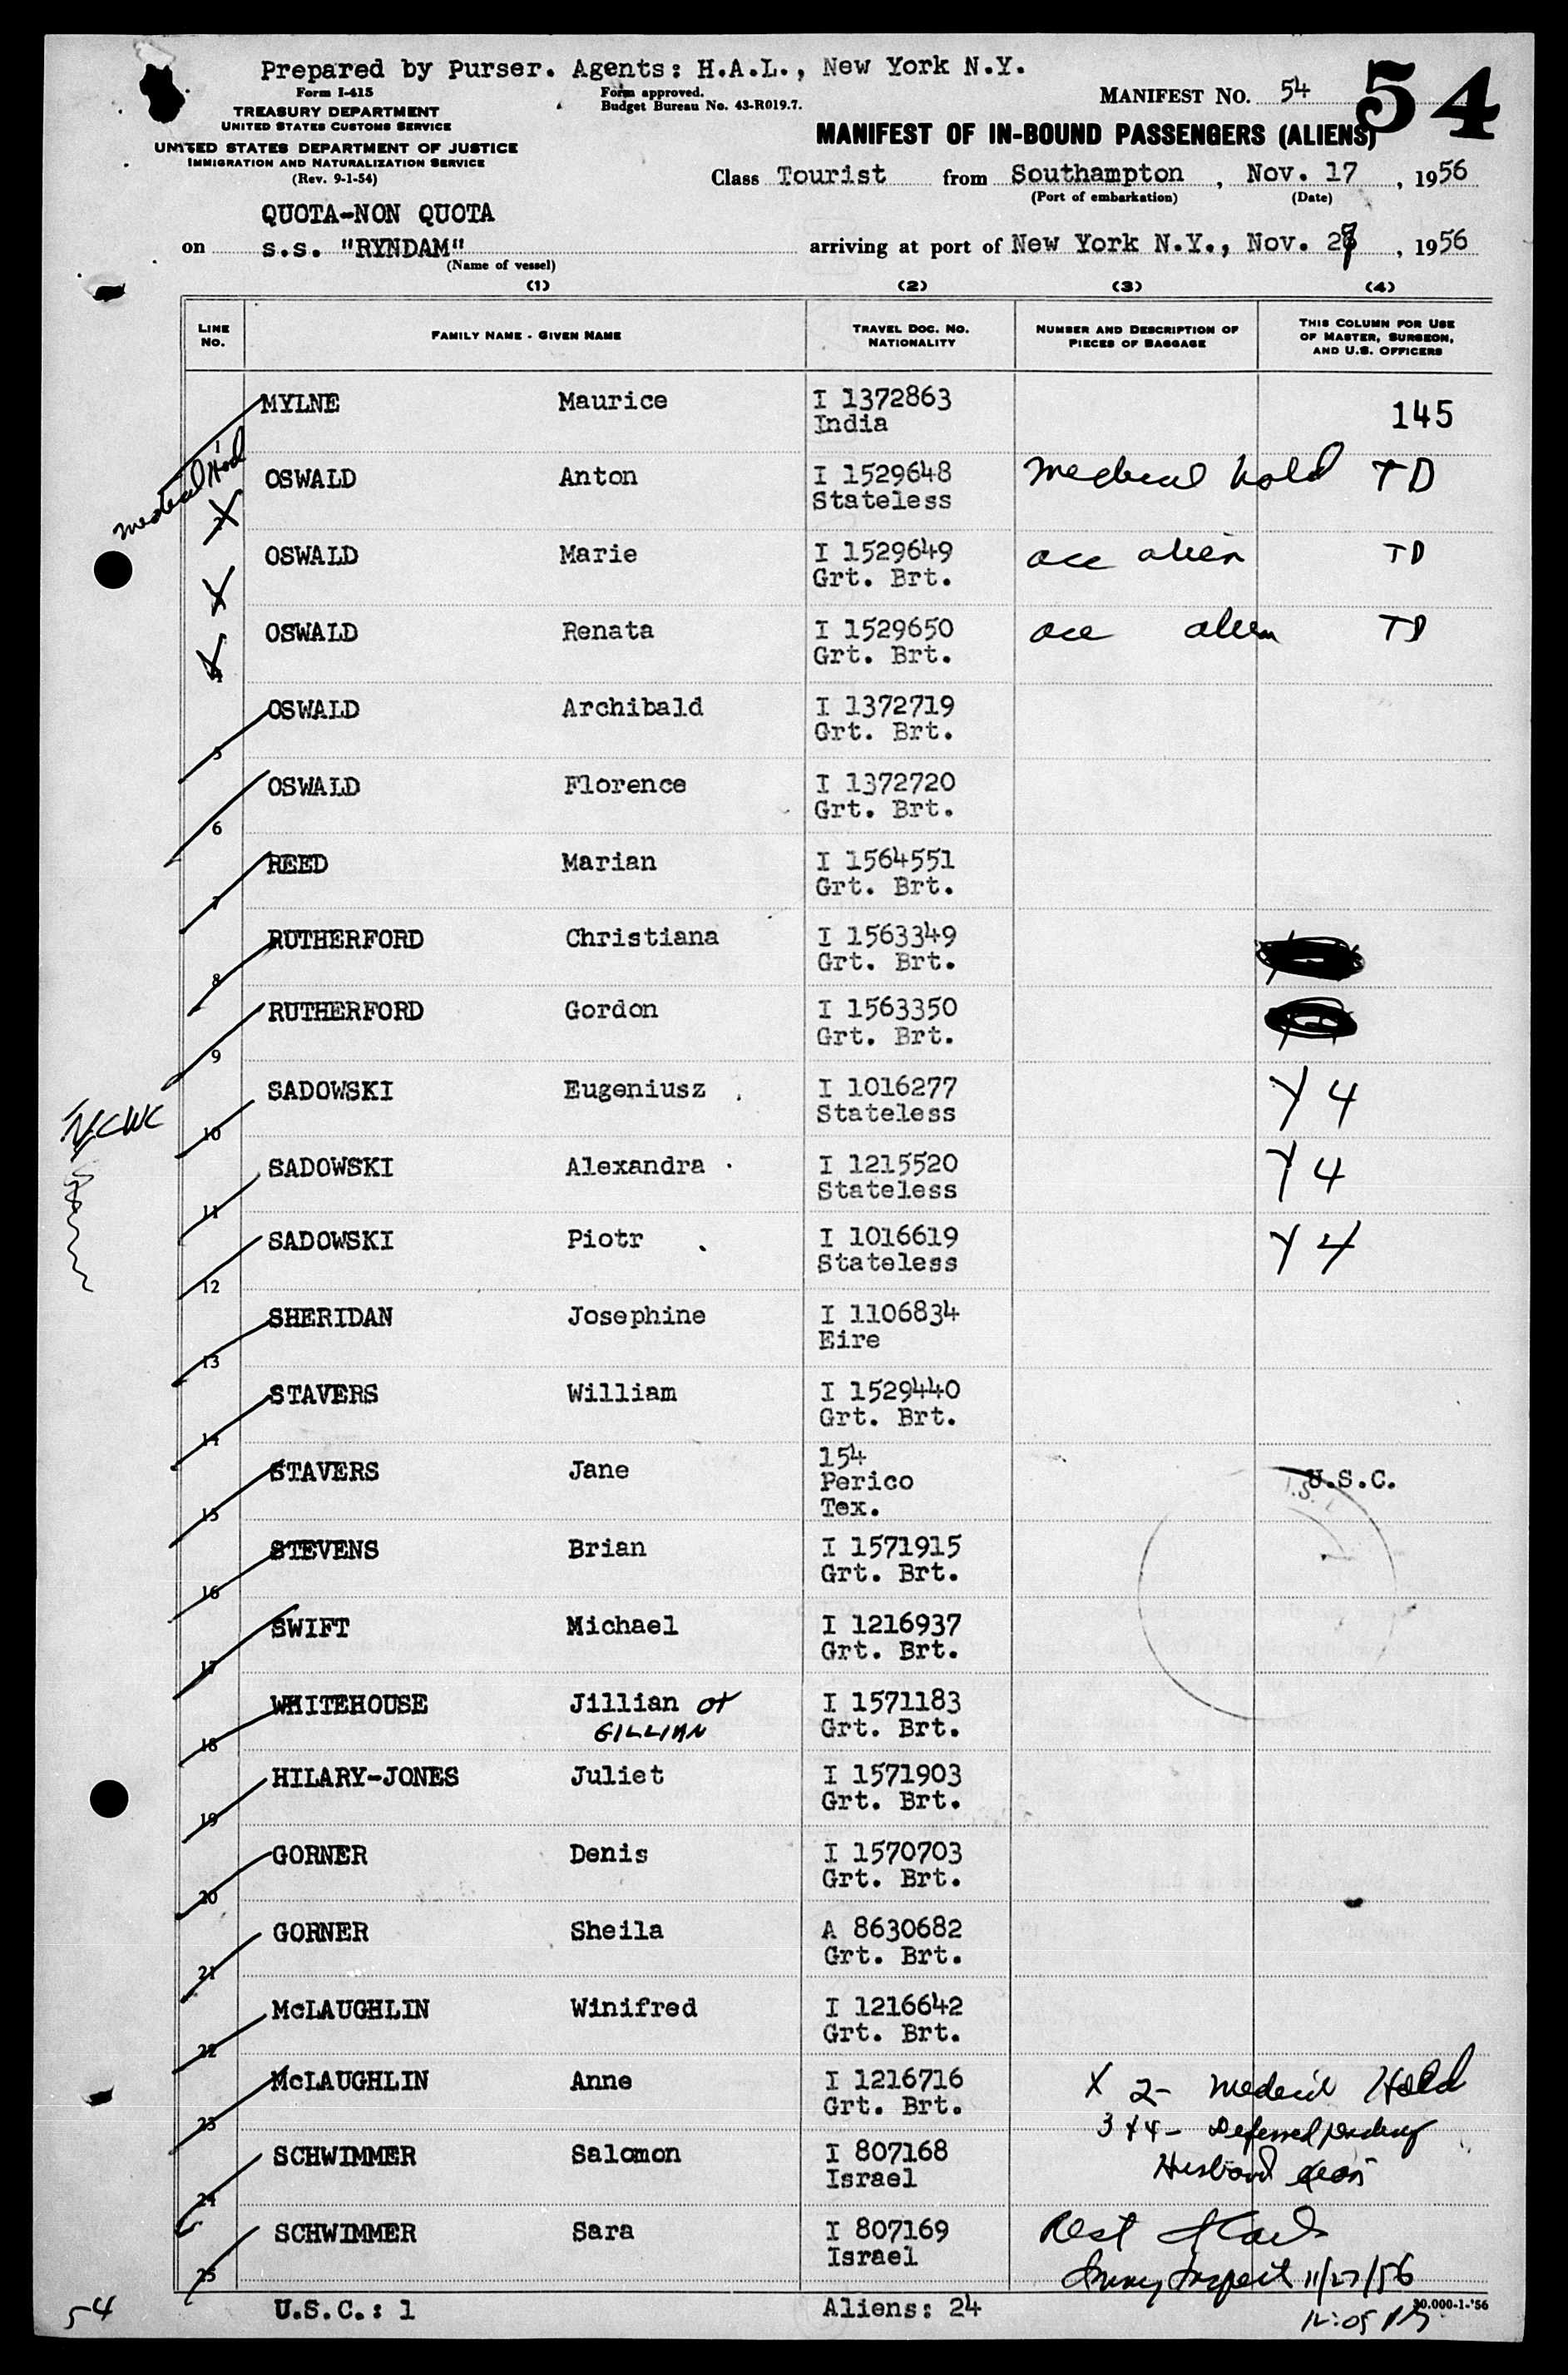 Prepared by Purser. Agents: H.A.L., New York N.Y.
Form I-415
TREASURY DEPARTMENT
UNITED STATES CUSTOMS SERVICE
UNITED STATES DEPARTMENT OF JUSTICE
IMMIGRATION AND NATURALIZATION SERVICE
(Rev. 9-1-54)
Form approved.
Budget Bureau No. 43-R019.7.
MANIFEST NO. 54
54
MANIFEST OF IN-BOUND PASSENGERS (ALIENS)
Class Tourist from Southampton, Nov. 17, 1956
(Port of embarkation) (Date)
QUOTA-NON QUOTA
on s.s. "RYNDAM" arriving at port of New York N.Y., Nov. 27, 1956
(Name of vessel)
(1) (2) (3) (4)
LINE NO. FAMILY NAME - GIVEN NAME TRAVEL DOC. NO. NATIONALITY NUMBER AND DESCRIPTION OF PIECES OF BAGGAGE THIS COLUMN FOR USE OF MASTER, SURGEON, AND U.S. OFFICERS
1 MYLNE Maurice I 1372863 145
India
Medical Hold
OSWALD Anton I 1529648 Medical hold TD
X Stateless
OSWALD Marie I 1529649 acc alien TD
X Grt. Brt.
OSWALD Renata I 1529650 acc alien TD
X 4 Grt. Brt.
OSWALD Archibald I 1372719
5 Grt. Brt.
OSWALD Florence I 1372720
6 Grt. Brt.
REED Marian I 1564551
7 Grt. Brt.
RUTHERFORD Christiana I 1563349
8 Grt. Brt.
RUTHERFORD Gordon I 1563350
9 Grt. Brt.
SADOWSKI Eugeniusz I 1016277 Y 4
NCWC 10 Stateless
SADOWSKI Alexandra I 1215520 Y 4
11 Stateless
SADOWSKI Piotr I 1016619 Y 4
12 Stateless
SHERIDAN Josephine I 1106834
13 Eire
STAVERS William I 1529440
14 Grt. Brt.
STAVERS Jane 154 U.S.C.
Perico
15 Tex.
STEVENS Brian I 1571915
16 Grt. Brt.
SWIFT Michael I 1216937
17 Grt. Brt.
WHITEHOUSE Jillian or I 1571183
18 GILLIAN Grt. Brt.
HILARY-JONES Juliet I 1571903
19 Grt. Brt.
GORNER Denis I 1570703
20 Grt. Brt.
GORNER Sheila A 8630682
21 Grt. Brt.
McLAUGHLIN Winifred I 1216642
22 Grt. Brt.
McLAUGHLIN Anne I 1216716 X 2- Medical Hold
23 Grt. Brt. 3 + 4 - Deferred pending
SCHWIMMER Salomon I 807168 Husband
24 Israel
SCHWIMMER Sara I 807169 Rest
25 Israel Inspect 11/27/56
54 U.S.C.: 1 Aliens: 24 30.000-1-'56
12:05 PM